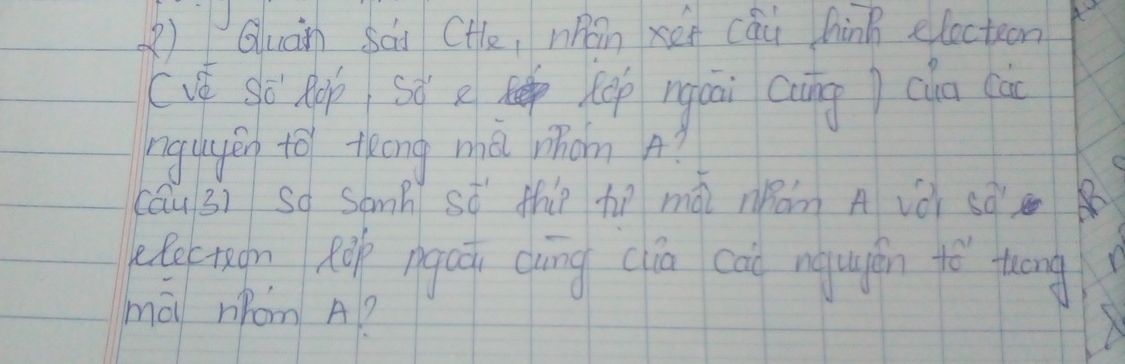 2) Quan sát CHe, nhận xét cấu hình electron
(về số lớp, số e lớp ngoài cùng) của các
nguyên tố trong mỗi nhóm A?
Câu 3) So sánh số thứ tự mỗi nhóm A với số
electron lớp ngoài cùng của các nguyên tố trong
mỗi nhóm A?